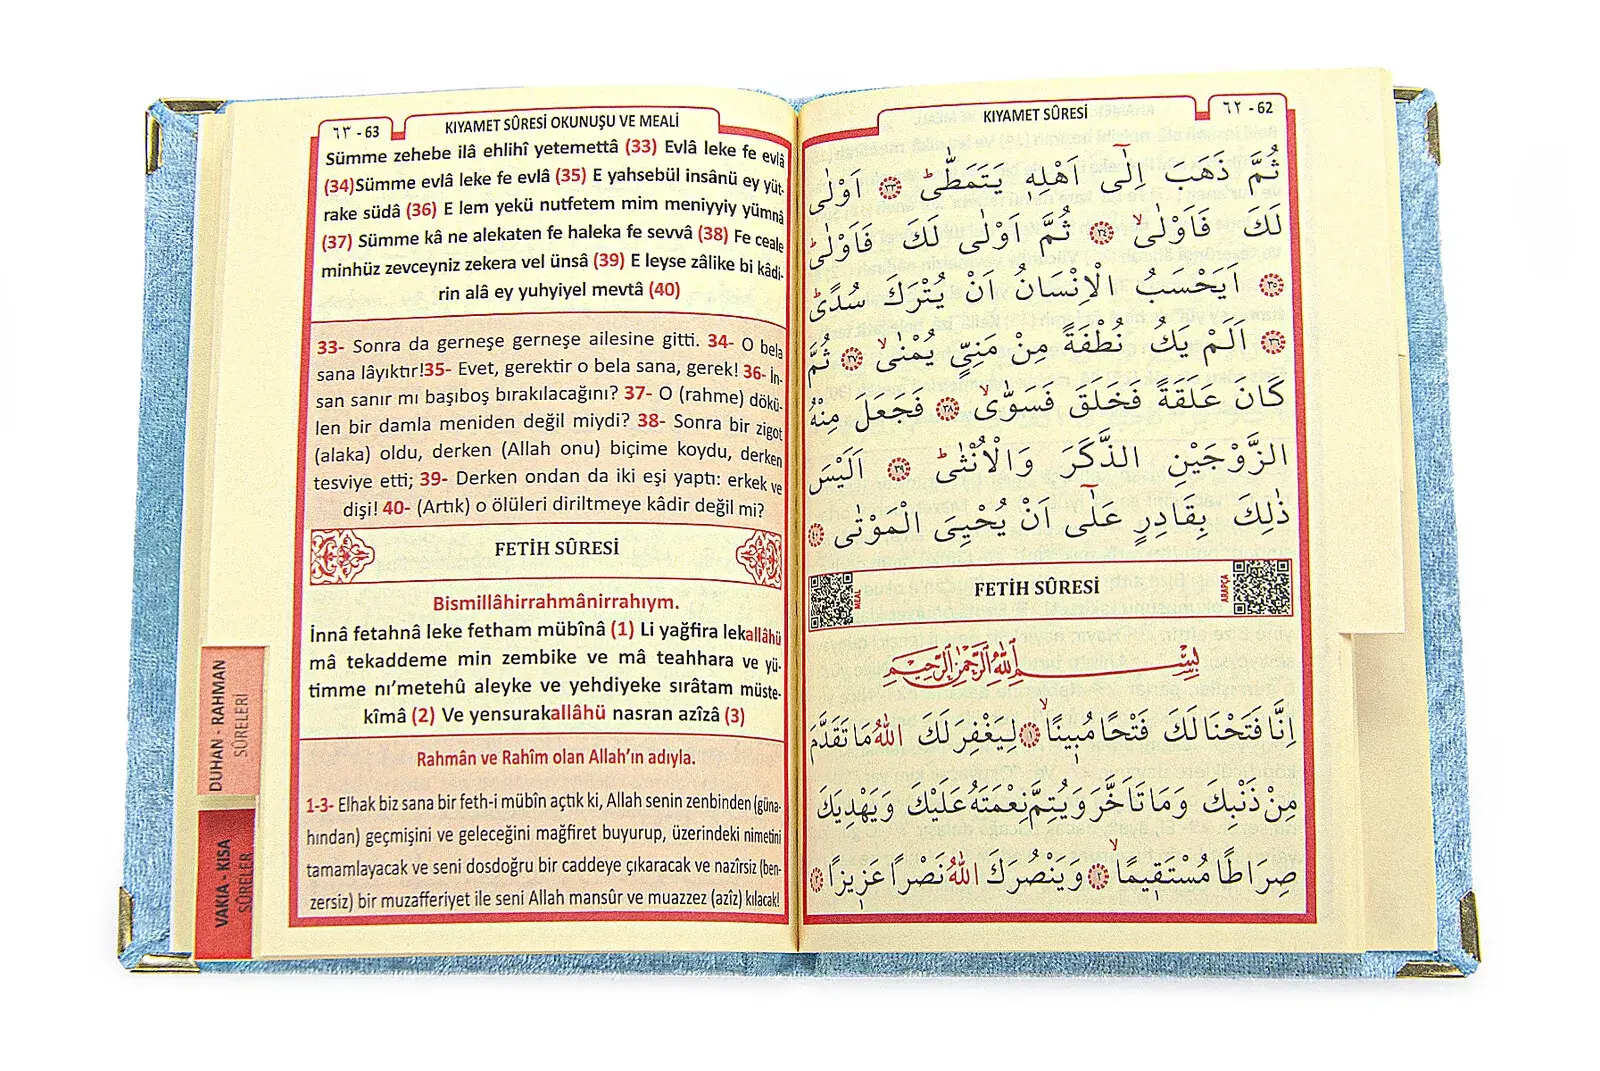 ٦٣ - 63
KIYAMET SÛRESİ OKUNUŞU VE MEALİ
Sümme zehebe ilâ ehlihî yetemettâ (33) Evlâ leke fe evlâ
(34)Sümme evlâ leke fe evlâ (35) E yahsebül insânü ey yüt-
rake südâ (36) E lem yekü nutfetem mim meniyyiy yümnâ
(37) Sümme kâ ne alekaten fe haleka fe sevvâ (38) Fe ceale
minhüz zevceyniz zekera vel ünsâ (39) E leyse zâlike bi kâdi-
rin alâ ey yuhyiyel mevtâ (40)
33- Sonra da gerneşe gerneşe ailesine gitti. 34- O bela
sana lâyıktır!35- Evet, gerektir o bela sana, gerek! 36- İn-
san sanır mı başıboş bırakılacağını? 37- O (rahme) dökü-
len bir damla meniden değil miydi? 38- Sonra bir zigot
(alaka) oldu, derken (Allah onu) biçime koydu, derken
tesviye etti; 39- Derken ondan da iki eşi yaptı: erkek ve
dişi! 40- (Artık) o ölüleri diriltmeye kâdir değil mi?
FETİH SÛRESİ
Bismillâhirrahmânirrahıym.
İnnâ fetahnâ leke fetham mübînâ (1) Li yağfira lekallâhü
mâ tekaddeme min zembike ve mâ teahhara ve yü-
timme nı’metehû aleyke ve yehdiyeke sırâtam müste-
kîmâ (2) Ve yensurakallâhü nasran azîzâ (3)
Rahmân ve Rahîm olan Allah’ın adıyla.
1-3- Elhak biz sana bir feth-i mübîn açtık ki, Allah senin zenbinden (güna-
hından) geçmişini ve geleceğini mağfiret buyurup, üzerindeki nimetini
tamamlayacak ve seni dosdoğru bir caddeye çıkaracak ve nazîrsiz (ben-
zersiz) bir muzafferiyet ile seni Allah mansûr ve muazzez (azîz) kılacak!
DUHAN - RAHMAN
SÛRELERİ
VAKIA - KISA
SÛRELER
KIYAMET SÛRESİ
٦٢ - 62
ثُمَّ ذَهَبَ اِلٰٓى اَهْلِه۪ يَتَمَطّٰىۜ ﴿٣٣﴾ اَوْلٰى
لَكَ فَاَوْلٰىۙ ﴿٣٤﴾ ثُمَّ اَوْلٰى لَكَ فَاَوْلٰىۜ
﴿٣٥﴾ اَيَحْسَبُ الْاِنْسَانُ اَنْ يُتْرَكَ سُدًىۜ
﴿٣٦﴾ اَلَمْ يَكُ نُطْفَةً مِنْ مَنِيٍّ يُمْنٰىۙ ﴿٣٧﴾ ثُمَّ
كَانَ عَلَقَةً فَخَلَقَ فَسَوّٰىۙ ﴿٣٨﴾ فَجَعَلَ مِنْهُ
الزَّوْجَيْنِ الذَّكَرَ وَالْاُنْثٰىۜ ﴿٣٩﴾ اَلَيْسَ
ذٰلِكَ بِقَادِرٍ عَلٰٓى اَنْ يُحْيِيَ الْمَوْتٰى ﴿٤٠﴾
MEAL
FETİH SÛRESİ
ARAPÇA
بِسْمِ اللّٰهِ الرَّحْمٰنِ الرَّحِيمِ
اِنَّا فَتَحْنَا لَكَ فَتْحًا مُب۪ينًاۙ ﴿١﴾ لِيَغْفِرَ لَكَ اللّٰهُ مَا تَقَدَّمَ
مِنْ ذَنْبِكَ وَمَا تَاَخَّرَ وَيُتِمَّ نِعْمَتَهُ عَلَيْكَ وَيَهْدِيَكَ
صِرَاطًا مُسْتَق۪يمًاۙ ﴿٢﴾ وَيَنْصُرَكَ اللّٰهُ نَصْرًا عَز۪يزًا ﴿٣﴾